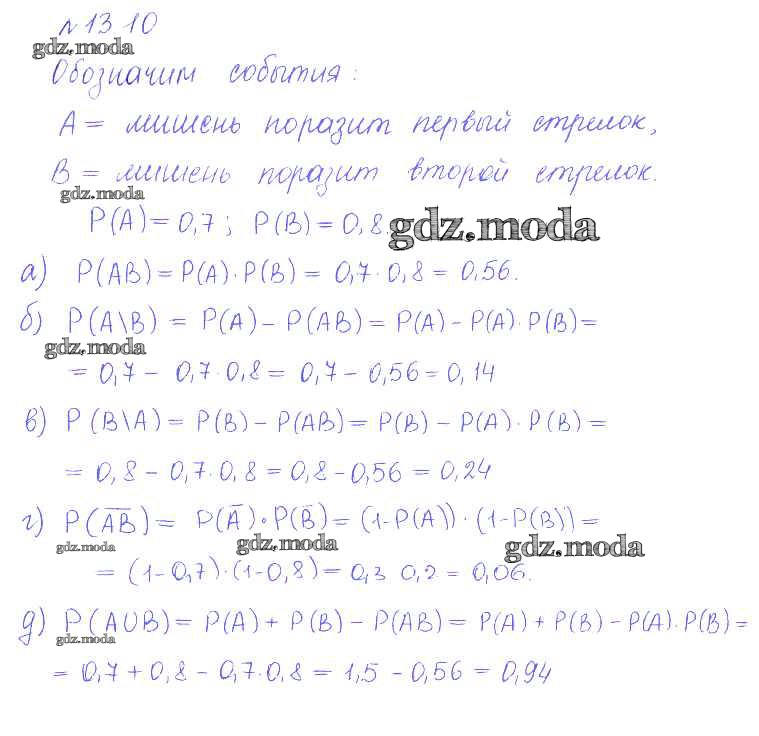 № 13 10
gdz.moda
Обозначим события:
A = мишень поразит первый стрелок,
B = мишень поразит второй стрелок.
gdz.moda
P(A) = 0,7; P(B) = 0,8
gdz.moda
а) P(AB) = P(A)·P(B) = 0,7·0,8 = 0,56.
б) P(A\B) = P(A) − P(AB) = P(A) − P(A)·P(B) =
gdz.moda
= 0,7 − 0,7·0,8 = 0,7 − 0,56 = 0,14
в) P(B\A) = P(B) − P(AB) = P(B) − P(A)·P(B) =
= 0,8 − 0,7·0,8 = 0,8 − 0,56 = 0,24
г) P(A̅B̅) = P(A̅)·P(B̅) = (1−P(A))·(1−P(B)) =
gdz.moda gdz.moda gdz.moda
= (1−0,7)·(1−0,8) = 0,3 0,2 = 0,06.
д) P(A∪B) = P(A) + P(B) − P(AB) = P(A) + P(B) − P(A)·P(B) =
gdz.moda
= 0,7 + 0,8 − 0,7·0,8 = 1,5 − 0,56 = 0,94